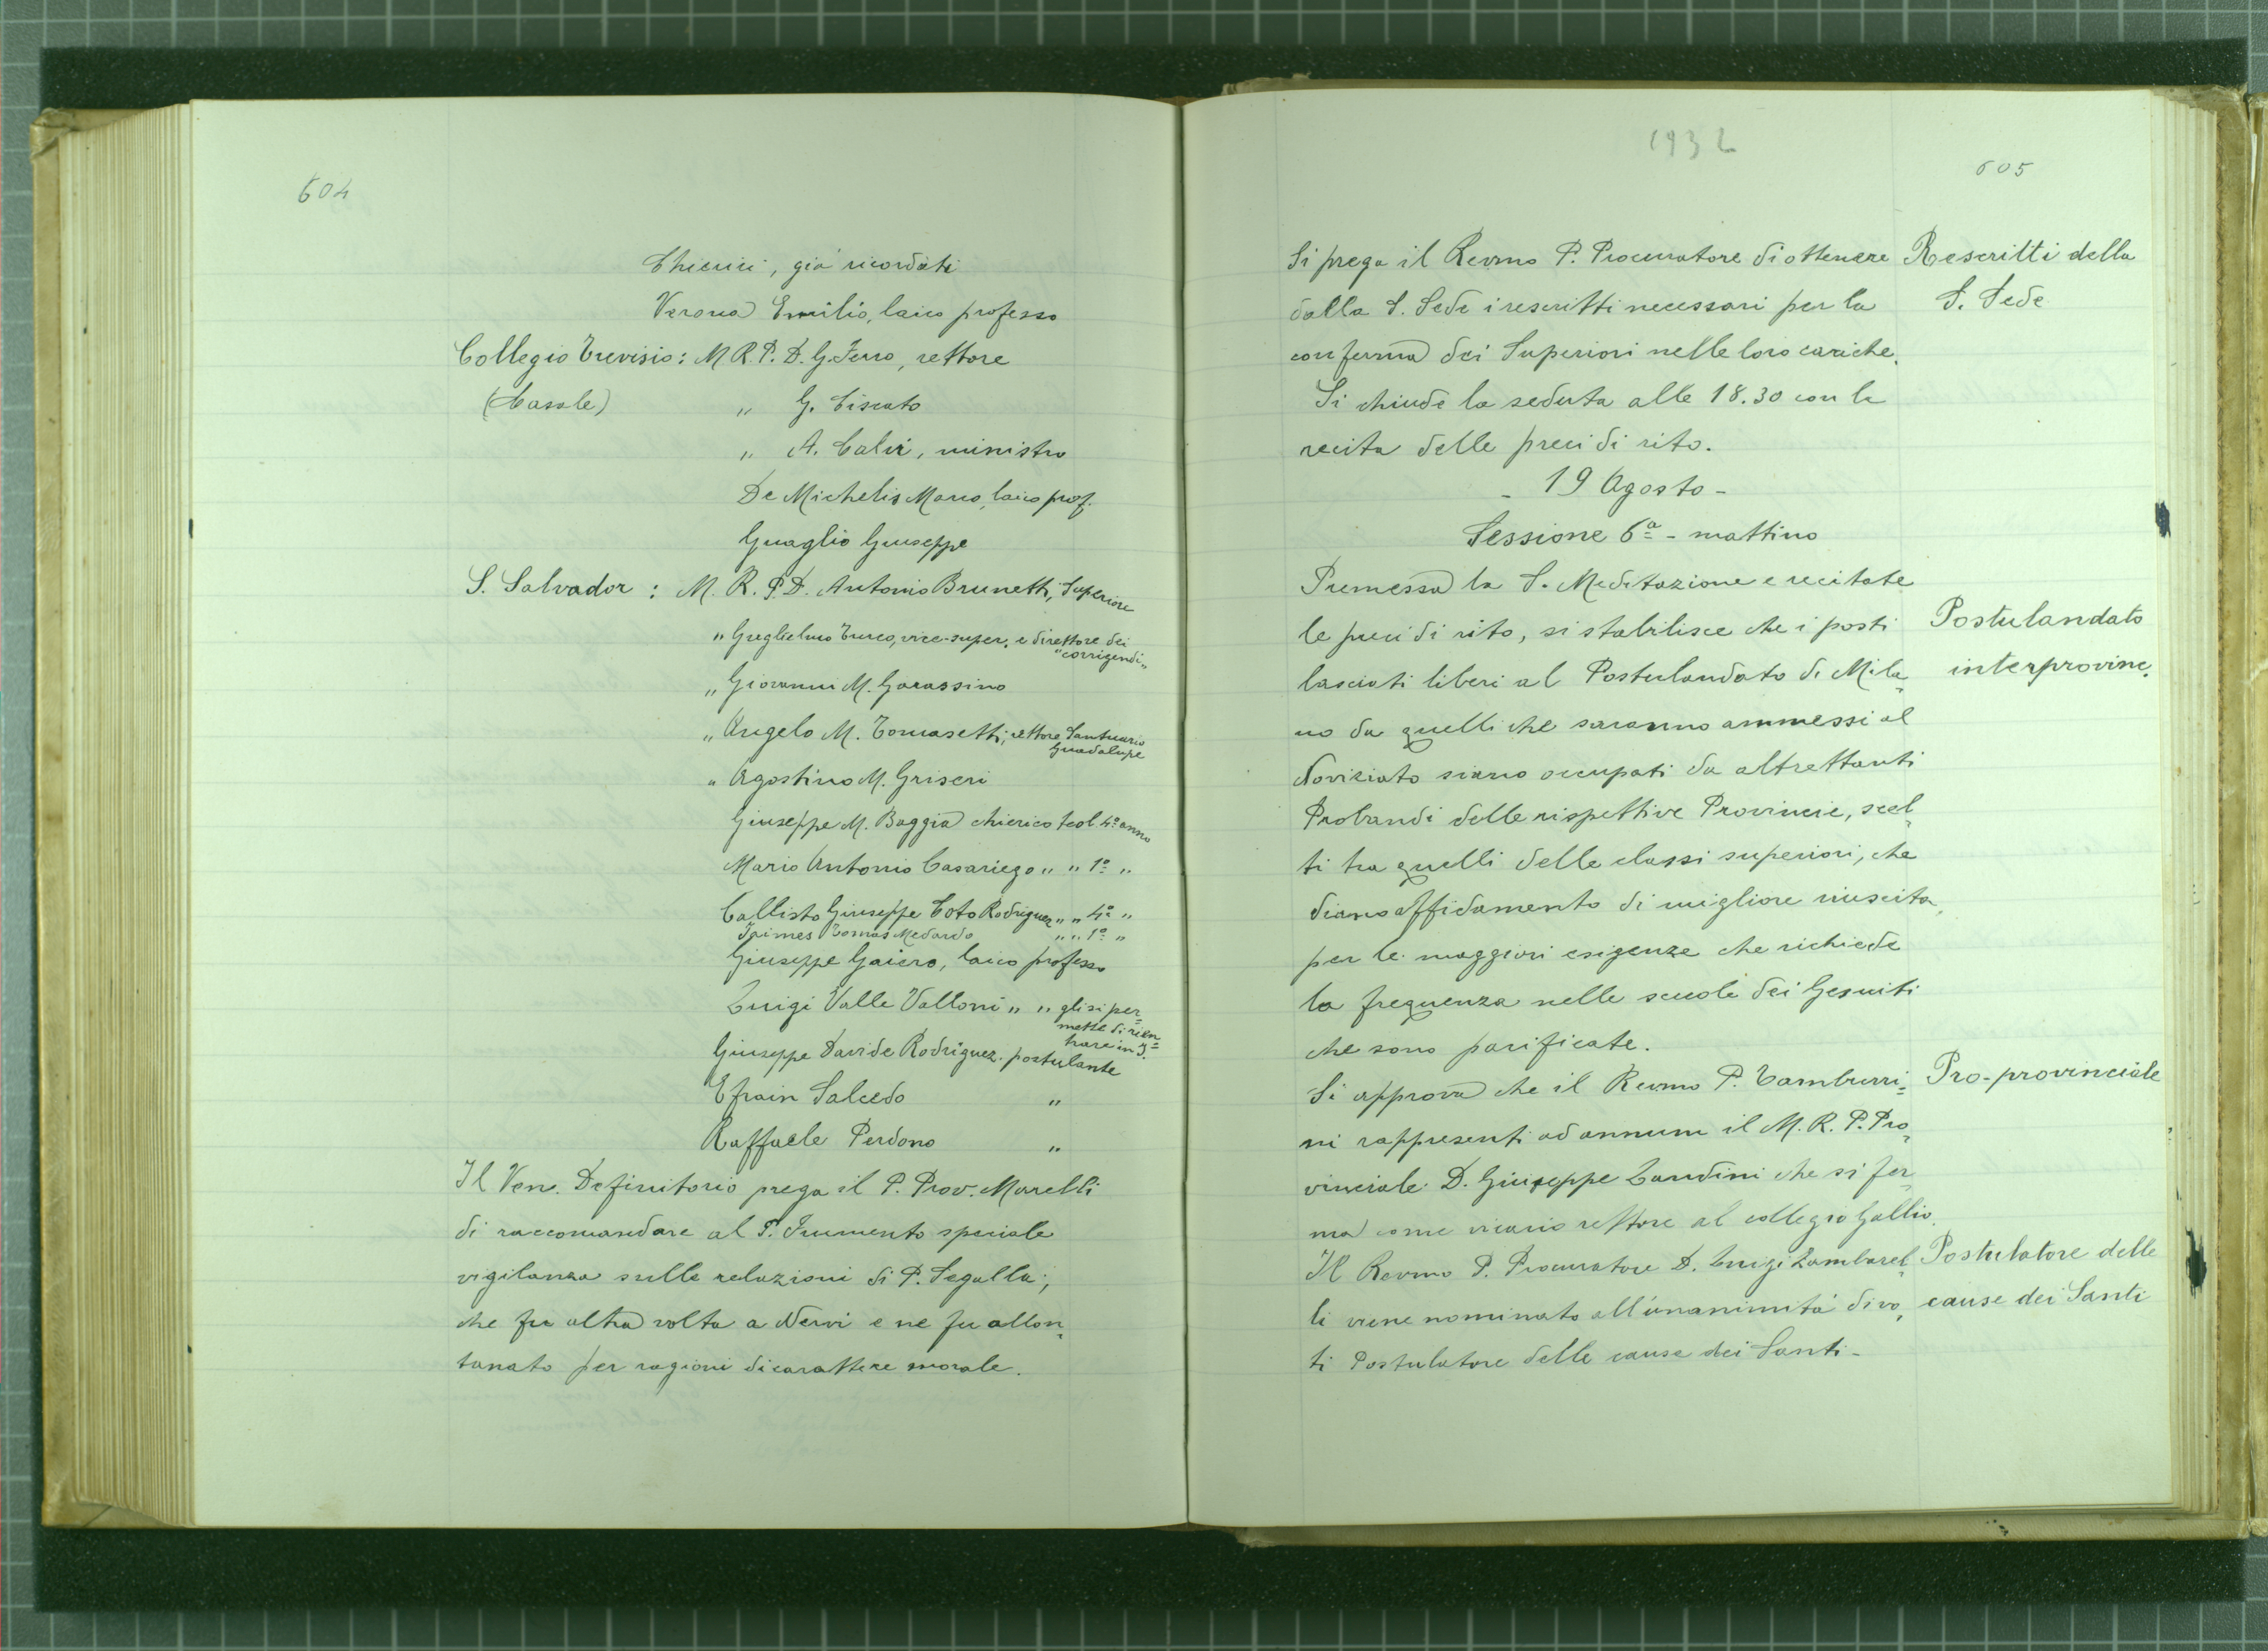 604
Chierici, già ricordati
Verona Emilio, laico professo
Collegio Trevisio: M R. P. D. G. Ferro, rettore
(Casale) " G. Ciscato
" A. Calvi, ministro
De Michelis Marco, laico prof.
Guaglio Giuseppe
S. Salvador : M. R. P. D. Antonio Brunetti, Superiore
" Guglielmo Turco, vice-super. e direttore dei
"corrigendi"
" Giovanni M. Garassino
" Angelo M. Tomasetti, rettore Santuario
Guadalupe
" Agostino M. Griseri
Giuseppe M. Boggia chierico teol. 4º anno
Mario Antonio Casariego " " 1º "
Callisto Giuseppe Coto Rodriguez " " 4º "
Jaimes Tomas Medardo " " 1º "
Giuseppe Gaiero, laico professo
Luigi Valle Valloni " " gli si per=
mette di rien=
trare in I.
Giuseppe Davide Rodriguez. postulante
Efrain Salcedo "
Raffaele Perdono "
Il Ven. Definitorio prega il P. Prov. Marelli
di raccomandare al P. Frumento speciale
vigilanza sulle relazioni di P. Segalla,
che fu altra volta a Nervi e ne fu allon=
tanato per ragioni di carattere morale.
1932
605
Si prega il Revmo P. Procuratore di ottenere
dalla S. Sede i rescritti necessari per la
conferma dei Superiori nelle loro cariche.
Si chiude la seduta alle 18.30 con la
recita delle preci di rito.
Rescritti della
S. Sede
- 19 Agosto -
Sessione 6ª - mattino
Premessa la S. Meditazione e recitate
le preci di rito, si stabilisce che i posti
lasciati liberi al Postulandato di Mila=
no da quelli che saranno ammessi al
Noviziato siano occupati da altrettanti
Probandi delle rispettive Provincie, scel=
ti tra quelli delle classi superiori, che
diano affidamento di migliore riuscita,
per le maggiori esigenze che richiede
la frequenza nelle scuole dei Gesuiti
che sono parificate.
Postulandato
interprovinc.
Si approva che il Revmo P. Tamburri=
ni rappresenti ad annum il M. R. P. Pro=
vinciale D. Giuseppe Landini che si fer=
ma come vicario rettore al collegio Gallio.
Pro-provinciale
Il Revmo P. Procuratore D. Luigi Zambarel=
li viene nominato all'unanimità di vo=
ti Postulatore delle cause dei Santi -
Postulatore delle
cause dei Santi